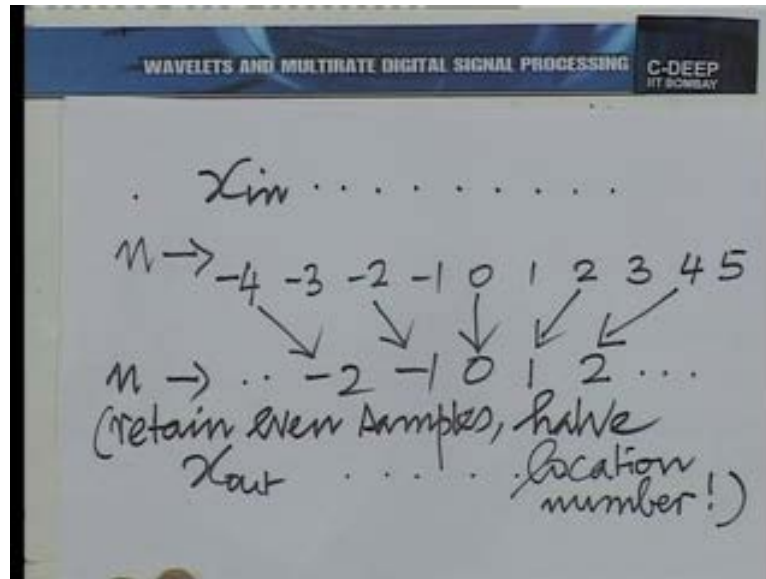 WAVELETS AND MULTIRATE DIGITAL SIGNAL PROCESSING
C-DEEP
IIT BOMBAY
. Xin . . . . . . . . . .
n → -4 -3 -2 -1 0 1 2 3 4 5
n → .. -2 -1 0 1 2 ...
(retain even samples, halve
Xout . . . . . . location
number!)